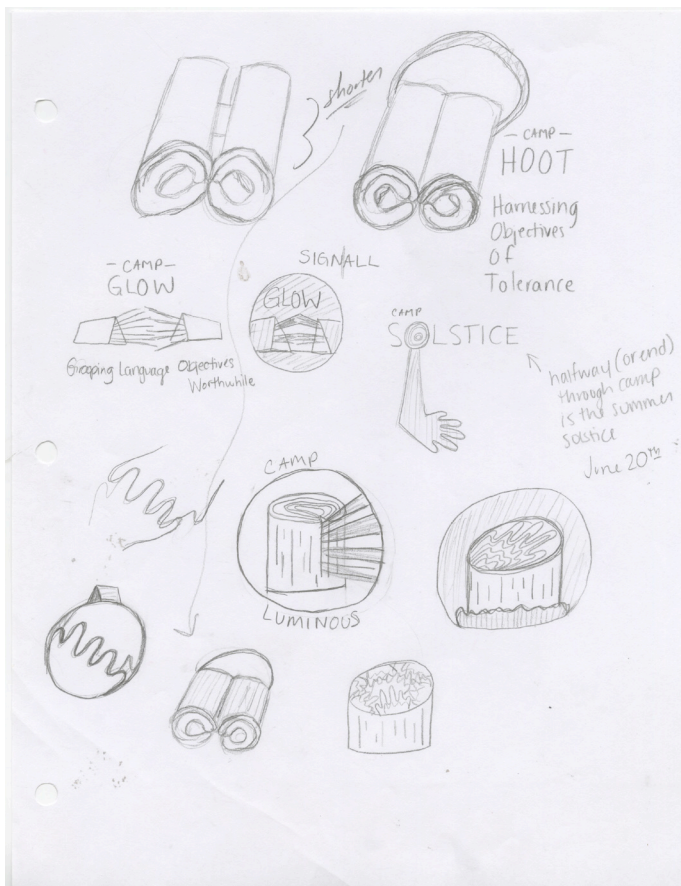 shorter
- CAMP -
HOOT
Harnessing
Objectives
Of
Tolerance
SIGNALL
- CAMP -
GLOW
GLOW
Grasping Language Objectives
Worthwhile
CAMP
SOLSTICE
halfway (or end)
through camp
is the summer
solstice
June 20TH
CAMP
LUMINOUS